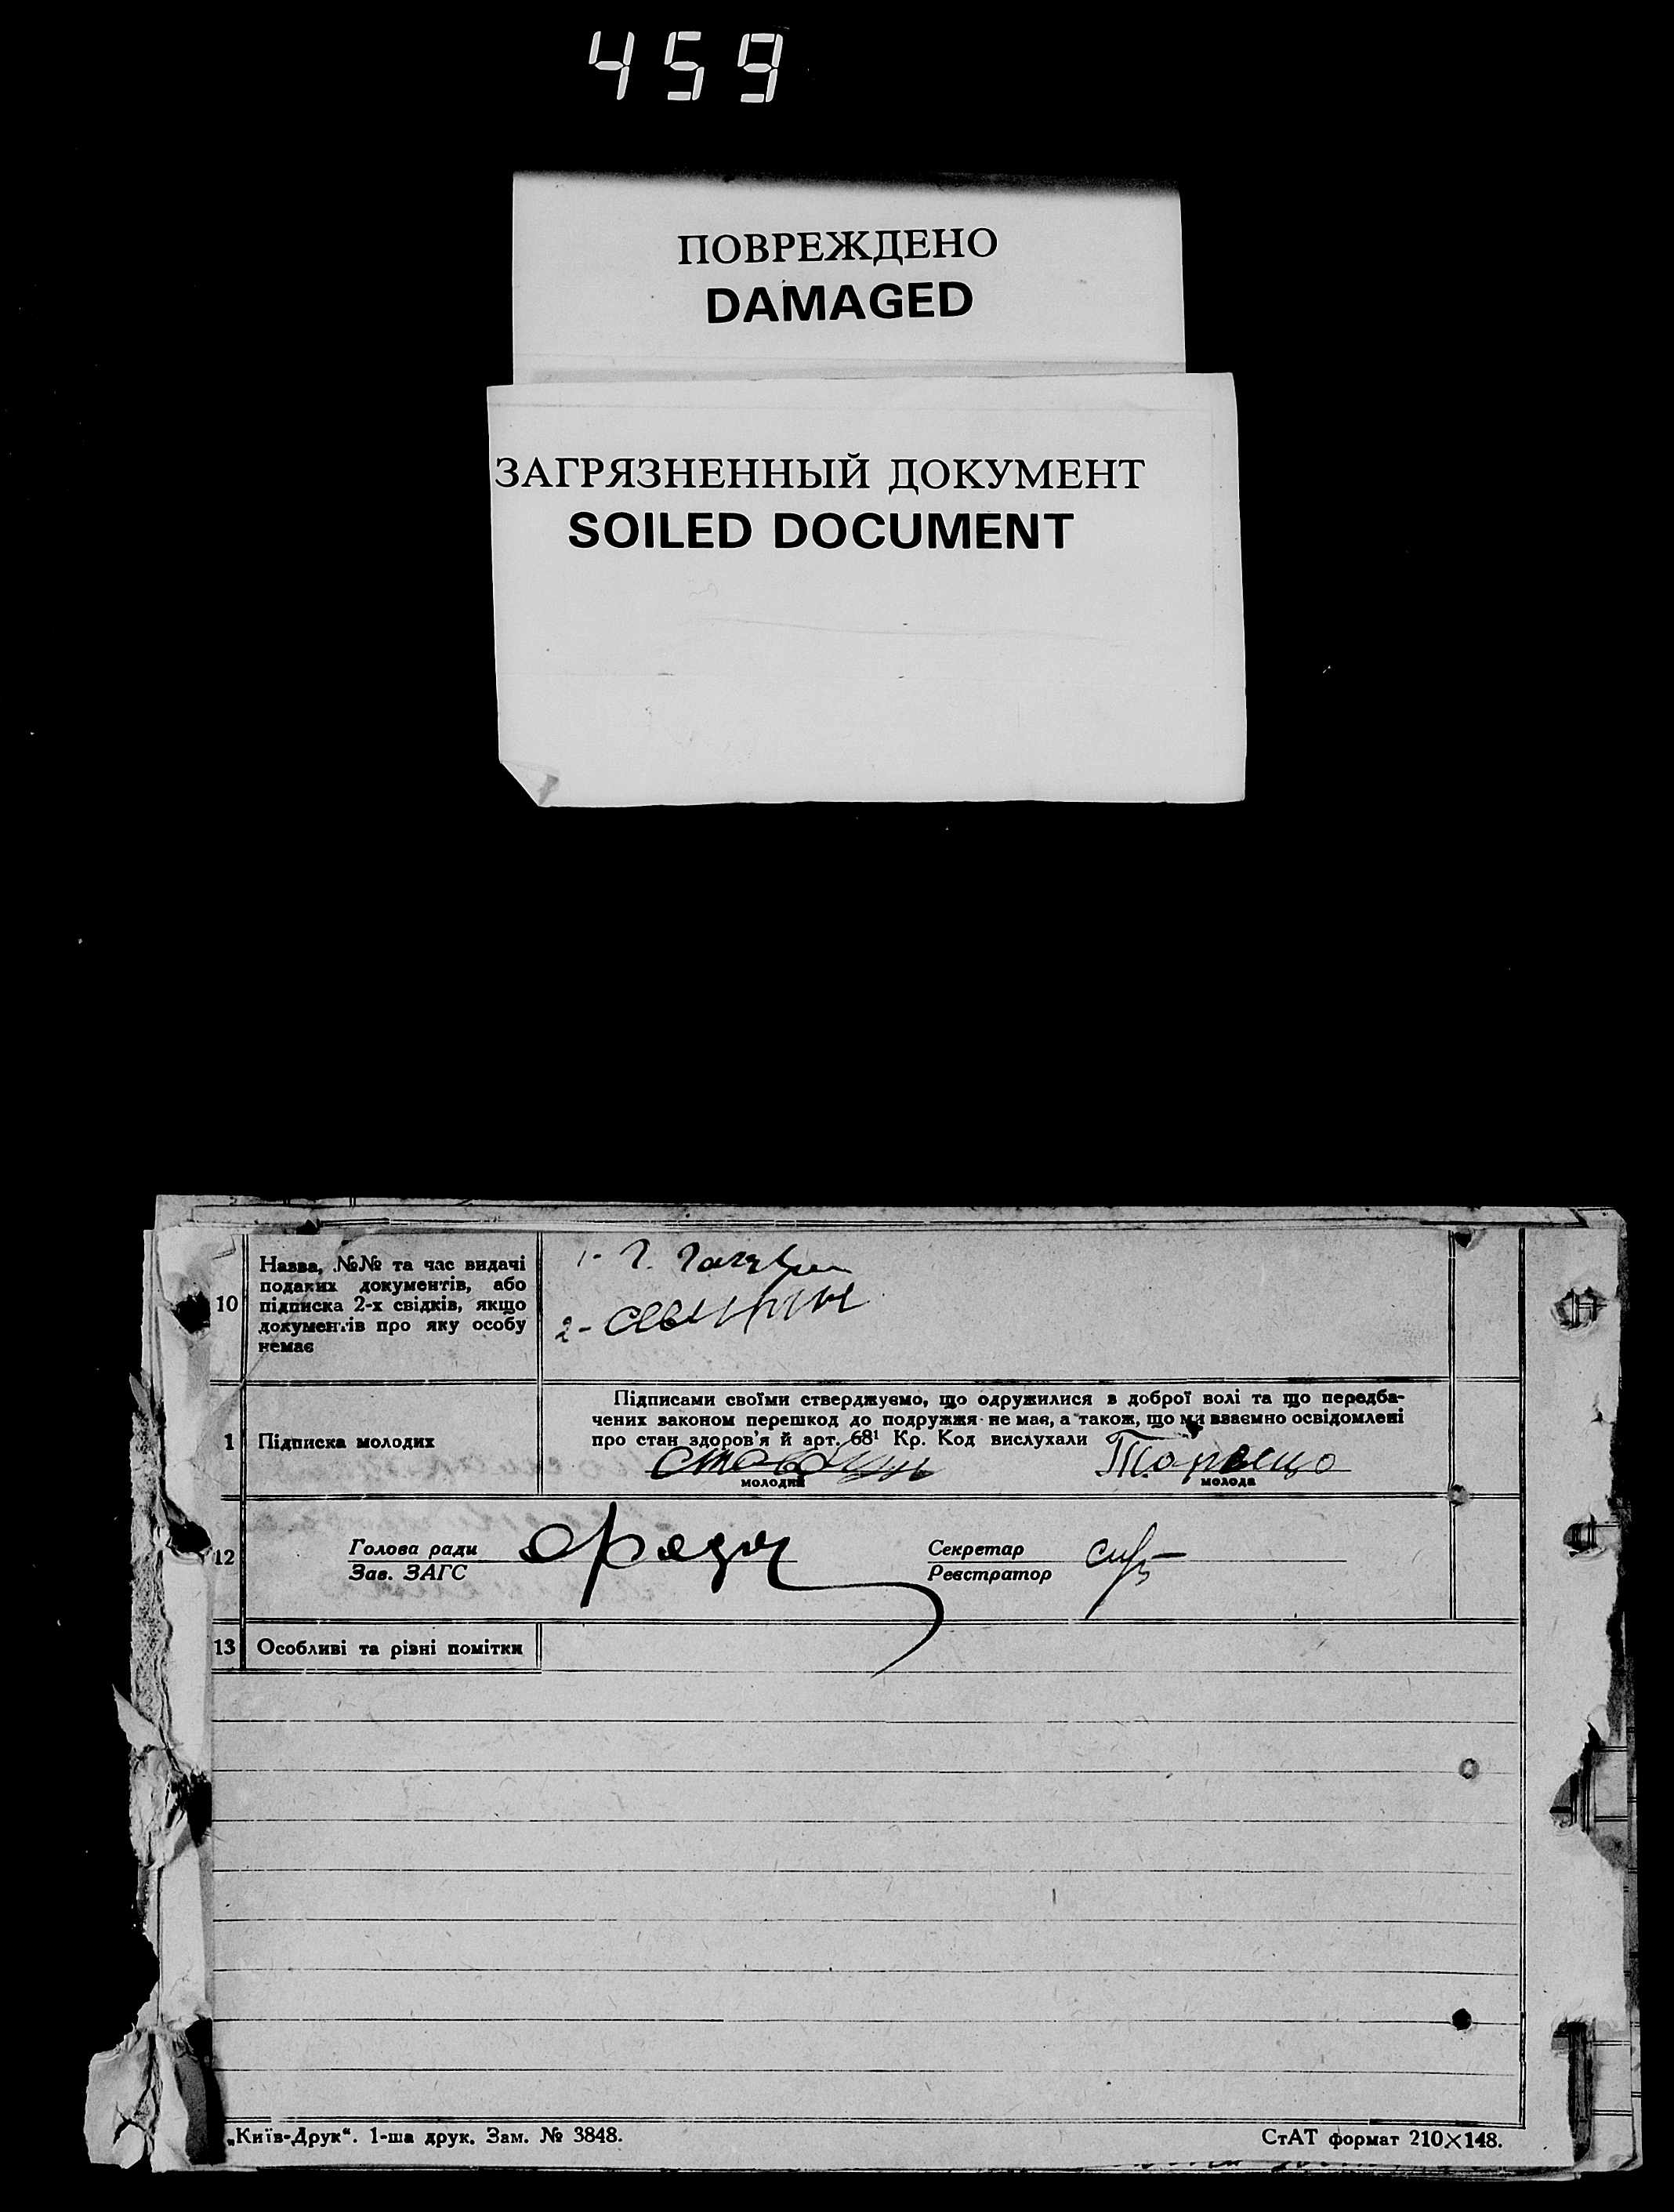 459
ПОВРЕЖДЕНО
DAMAGED
ЗАГРЯЗНЕННЫЙ ДОКУМЕНТ
SOILED DOCUMENT
10
Назва, №№ та час видачі
поданих документів, або
підписка 2-х свідків, якщо
документів про яку особу
немає
1-
2-
1
Підписка молодих
Підписами своїми стверджуємо, що одружилися в доброї волі та що передба-
чених законом перешкод до подружжя не має, а також, що ми взаємно освідомлені
про стан здоров'я й арт. 68¹ Кр. Код вислухали
молодий
молода
12
Голова ради
Зав. ЗАГС
Секретар
Реєстратор
13
Особливі та різні помітки
„Київ-Друк“. 1-ша друк. Зам. № 3848.
СтАТ формат 210×148.